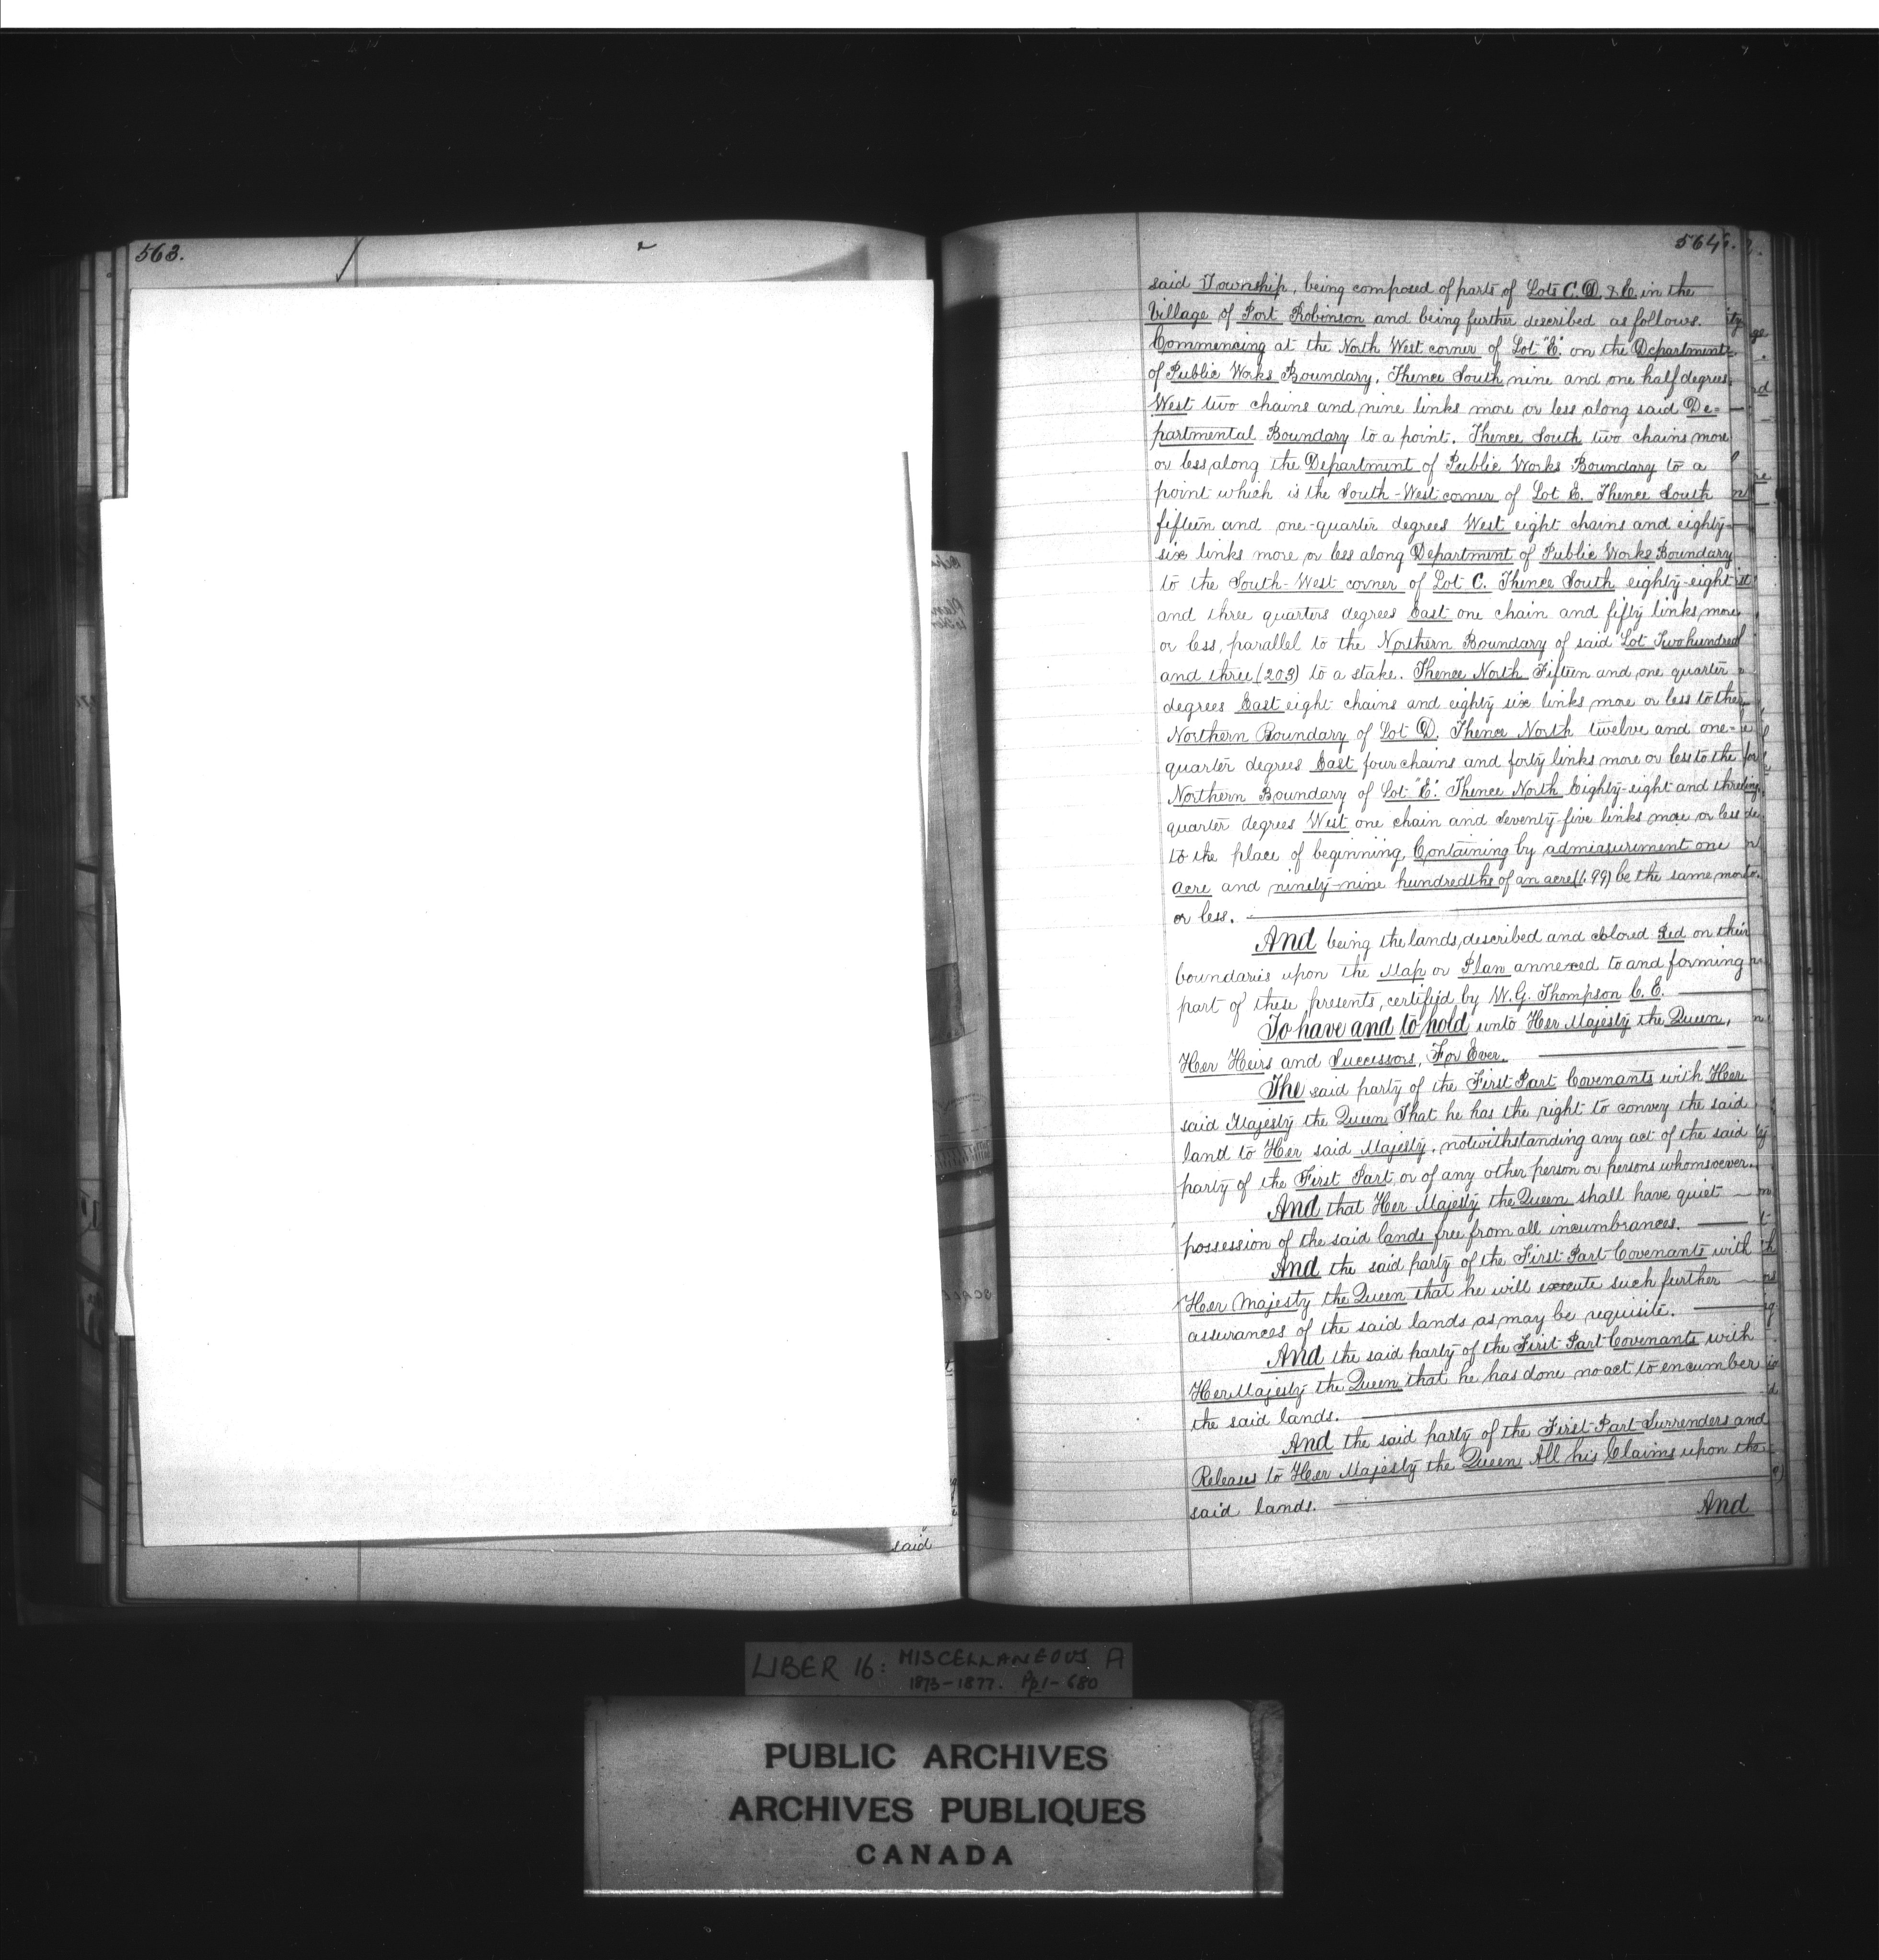 563.
said
564.
said Township, being composed of parts of Lots C. D. & E in the
Village of Port Robinson and being further described as follows.
Commencing at the North West corner of Lot "E." on the Department
of Public Works Boundary. Thence South nine and one half degrees
West two chains and nine links more or less along said De=
partmental Boundary to a point. Thence South two chains more
or less, along the Department of Public Works Boundary to a
point which is the South-West corner of Lot E. Thence South
fifteen and one-quarter degrees West eight chains and eighty-
six links more or less along Department of Public Works Boundary
to the South-West corner of Lot C. Thence South eighty-eight
and three quarters degrees East one chain and fifty links, more
or less, parallel to the Northern Boundary of said Lot Two hundred
and three (203) to a stake. Thence North Fifteen and one quarter
degrees East eight chains and eighty six links more or less to the
Northern Boundary of Lot D. Thence North twelve and one-
quarter degrees East four chains and forty links more or less to the
Northern Boundary of Lot "E". Thence North Eighty-eight and three
quarter degrees West one chain and seventy-five links more or less
to the place of beginning, Containing by admeasurement one
acre and ninety-nine hundredths of an acre (1.99) be the same more
or less.
And being the lands, described and colored Red on their
boundaries upon the Map or Plan annexed to and forming
part of these presents, certified by W. G. Thompson C. E.
To have and to hold unto Her Majesty the Queen,
Her Heirs and Successors, For Ever.
The said party of the First Part Covenants with Her
said Majesty the Queen That he has the right to convey the said
land to Her said Majesty, notwithstanding any act of the said
party of the First Part, or of any other person or persons whomsoever.
And that Her Majesty the Queen shall have quiet
possession of the said lands free from all incumbrances.
And the said party of the First Part Covenants with
Her Majesty the Queen that he will execute such further
assurances of the said lands as may be requisite.
And the said party of the First Part Covenants with
Her Majesty the Queen that he has done no act to encumber
the said lands.
And the said party of the First Part Surrenders and
Releases to Her Majesty the Queen All his Claims upon the
said lands.
And
LIBER 16: MISCELLANEOUS A
1873-1877. Pp 1-680
PUBLIC ARCHIVES
ARCHIVES PUBLIQUES
CANADA